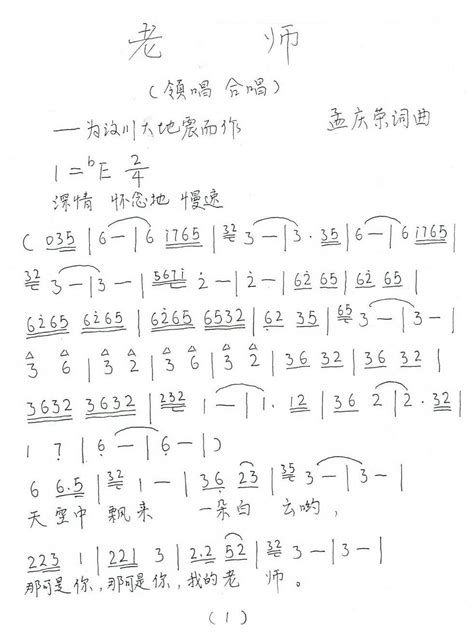 老 师
(领唱 合唱)
—为汶川大地震而作 孟庆荣词曲
1=ᵇE 2/4
深情 怀念地 慢速
( 035 | 6 — | 6 i765 | 32 3 — | 3 . 35 | 6 — | 6 i765 |
32 3 — | 3 — | 567i 2 — | 2 — | 62 65 | 62 65 |
6265 6265 | 6265 6532 | 62 35 | 65 3 — | 3 — |
3 6 | 3 2 | 3 6 | 3 2 | 36 32 | 36 32 |
3632 3632 | 232 1 — | 1 . 12 | 36 2 | 2 . 32 |
1 7 | 6 — | 6 — | )
6 6.5 | 32 1 — | 36 23 | 35 3 — | 3 — |
天空中 飘来 一朵白 云哟，
223 1 | 221 3 | 2.2 52 | 32 3 — | 3 — |
那可是你，那可是你，我的老 师。
(1)